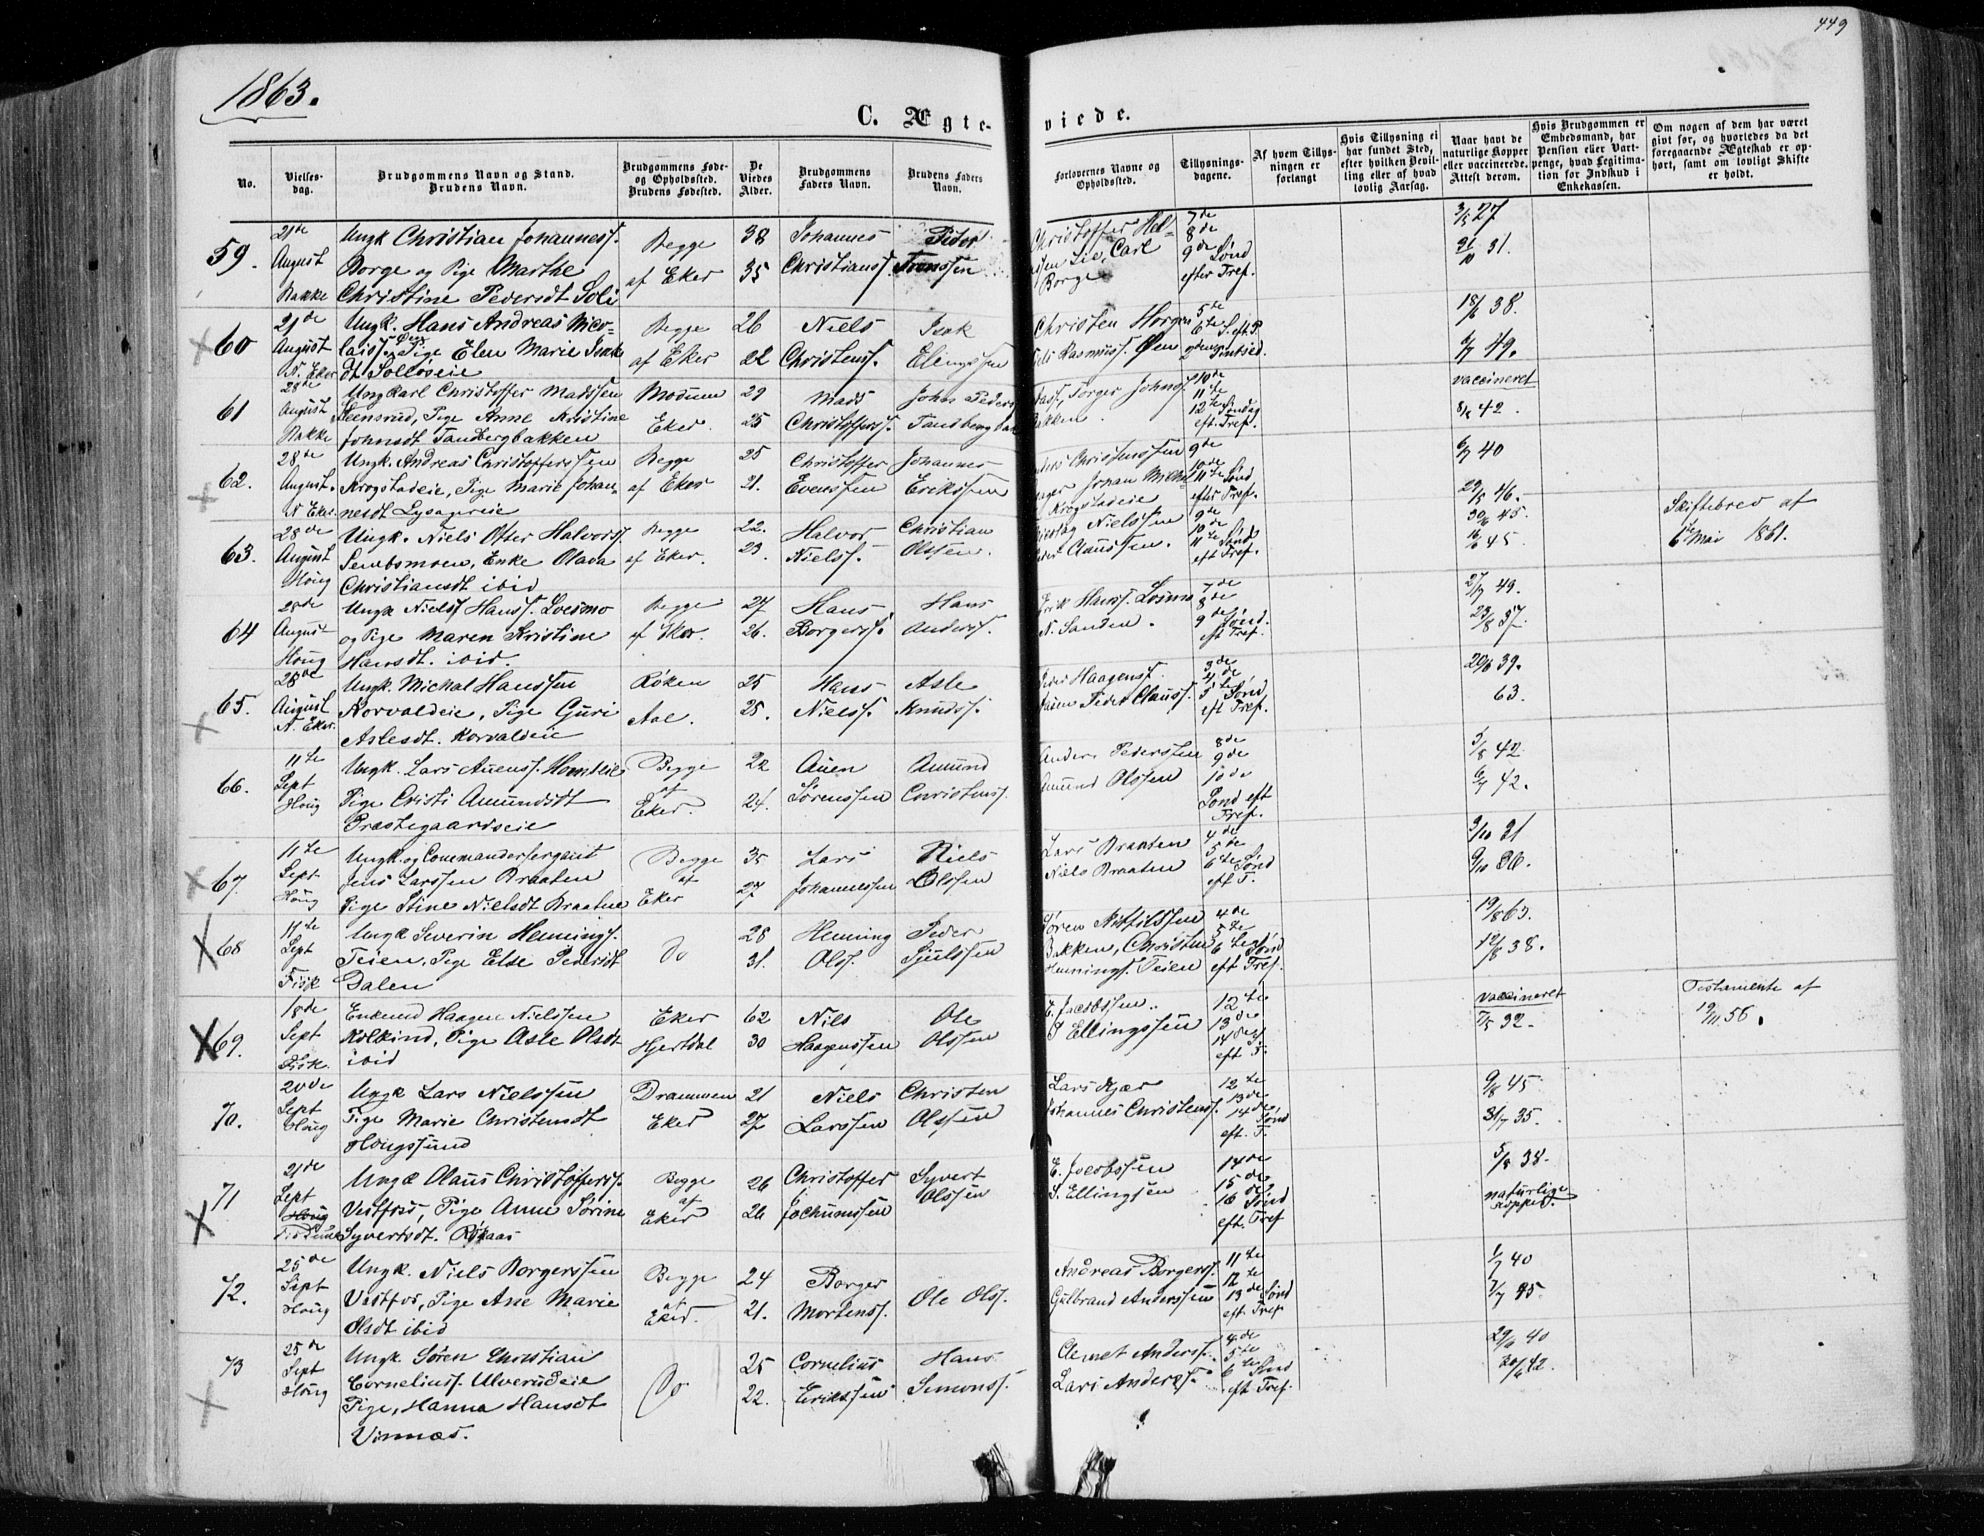 449
1863.
C. Ægte-viede.
No.
Vielses-dag.
Brudgommens Navn og Stand.
Brudens Navn.
Brudgommens Føde- og Opholdssted.
Brudens Fødested.
De Viedes Alder.
Brudgommens Faders Navn.
Brudens Faders Navn.
Forlovernes Navne og Opholdssted.
Tillysnings-dagene.
Af hvem Tillysningen er forlangt
Hvis Tillysning ei har fundet Sted, efter hvilken Bevilling eller af hvad lovlig Aarsag.
Naar havt de naturlige Kopper eller vaccinerede. Attest derom.
Hvis Brudgommen er Embedsmand, har Pension eller Vartpenge, hvad Legitimation for Indskud i Enkekassen.
Om nogen af dem har været givt før, og hvorledes da det foregaaende Ægteskab er ophørt, samt om lovligt Skifte er holdt.
59.
21de August Bakke
Ungk Christian Johanness.
Borge og Pige Marthe
Christine Pedersdt Soli
Begge af Eker
38 35
Johannes Christianss.
Peder Frenssen
Christoffer Hel-
ssen Lie, Carl
Borge
7de 8de 9de Sønd efter Tref.
3/5 27
31/10 31.
60
21de August N. Eker
Ungk. Hans Andreas Nico-
laiss. og Pige Elen Marie Isak
dt Solloseie
Begge af Eker
26 22
Niels Christenss.
Isak Elingssen
Christen Horgen
Rasmuss. Øen
5te 6te S. eft. T.
18/6 38.
6/7 49.
61
28de August Bakke
Ungkarl Christoffer Madssen
Steensrud, Pige Anne Kristine
Johnsdt Tandbergbakken
Modum Eker.
29 25
Mads Christofferss.
John Peders Tandberg bak
Torger Johnss.
Bakken.
10de 11te 12te Søndag eft. Tref.
vaccineret
8/8 42.
62.
28de August. N Eker.
Ungk. Andreas Christofferssen
Krogstadeie, Pige Marie Johan-
nesdt Lysagereie
Begge af Eker
25 21.
Christoffer Evenssen
Johannes Erikssen
Anders Christenssen
Johan Michel
Krogstadeie
9de 10de 11te Sønd efter Tref.
6/7 40
29/8 46.
63.
28de August Houg
Ungk. Niels Otter Halvors.
Sembsmoen, Enke Olava
Christiansdt ibid
Begge af Eker.
22. 23.
Halvor Nielss.
Christian Olssen.
Nielssen
Claussen.
9de 10de 11te Sønd eft Tref.
30/6 45.
16/6 45.
Skiftebrev af
6te Mai 1861.
64
28de August Houg
Ungk Niels Hanss. Loesmo
og Pige Maren Kristine
Hansdt. ibid.
Begge af Eker.
27 26.
Hans Borgerss.
Hans Anderss.
Erik Hanss. Losmo
N. Sanden.
7de 8de 9de Sønd. eft Tref.
27/9 49.
23/8 37.
65.
28de August N. Eker.
Ungk. Michal Hanssen
Korvaldeie, Pige Guri
Aslesdt. Korvaldeie
Røken Aal.
25 25.
Hans Nielss.
Asle Knudss.
Peder Haagenss.
Peder Clauss.
3de 4de 5te Sønd eft Tref.
20/8 39.
63.
66.
11te Sept Houg
Ungk. Lars Auenss. Hemtleie
Pige Cristi Amundsdt
Præstegaardseie
Begge af Eker.
22 24.
Auen Sørenssen
Amund Christenss.
Anders Pederssen
Amund Olssen
8de 9de 10de Sønd eft Tref.
5/8 42
6/7 42.
67.
11te Sept. Houg
Ungk. og Commandersergeant
Jens Larssen Braaten
Pige Stine Nielsdt Braatne
Begge af Eker
35 27
Lars Johannessen
Niels Olssen
Lars Braaten
Niels Braaten
4de 5de 6te Sønd eft T.
3/10 31
9/10 36.
68
11te Sept Fisk
Ungk Severin Hennings.
Teien, Pige Else Pedersdt
Dalen
Do
28 31.
Henning Olss.
Peder Sjulssen
Søren
Bakken, Christen
Hennings. Teien
4de 5te 6te Sønd eft Tref.
19/8 63.
12/8 38.
69.
18de Sept Fisk.
Enkemd Haagen Nielssen
Kolkind, Pige Asle Olsdt
ibid
Eker Hjertdal
62 30
Nils Haagenssen
Ole Olssen
E. Jacobssen.
S Ellingssen
12te 13de 14de S. eft T.
vaccineret
7/5 32.
Testamente af
19/11 56.
70.
20de Sept Houg
Ungk Lars Nielssen
Pige Marie Christensdt
Hougssund
Drammen Eker
21 27
Niels Larssen
Christen Olssen
Lars Kjær
Johannes Christenss.
12te 13de 14de Sønd eft. T.
9/8 45
31/7 35.
71
21de Sept Houg
Ungk Olaus Christofferss.
Vestfos, Pige Anne Sørine
Syvertsdt. Røkaas
Begge af Eker
26 26
Christoffer Jochumssen
Syvert Olssen
E. Jacobssen
S. Ellingsen
14de 15de 16de Sønd eft. Tref
5/8 38.
naturlige Kopper.
72.
25de Sept Houg
Ungk. Niels Borgerssen
Vestfos, Pige Ane Marie
Olsdt ibid
Begge af Eker.
24 21.
Borger Mortenss.
Ole Olss.
Andreas Borgerss.
Gulbrand Anderssen
11te 12te 13de Sønd eft Tref
1/7 40
7/7 45.
73
25de Sept Houg
Ungk. Søren Christian
Corneliuss. Ulverudeie
Pige, Hanna Hansdt
Vinnæs.
Do
25 22.
Cornelius Erikssen
Hans Simonss.
Clemet Anderss.
Lars Anderss.
4de 5te 6te Sønd eft Tref.
29/8 40
30/6 42.